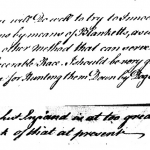 will Do well to try to Innocu
ns by means of Blanketts, as w
other Method that can serve
ecrable Race. I should be very g
e for Hunting them Down by Dog
his England is at too grea
k of that at present